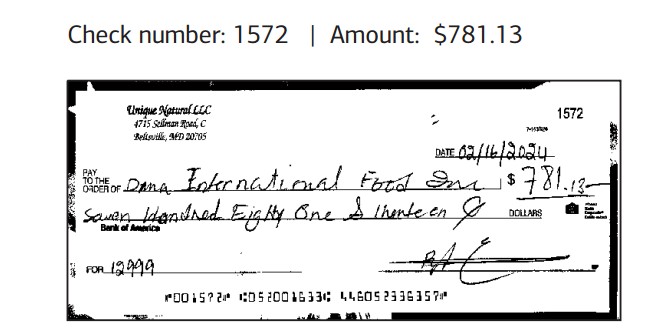 Check number: 1572 | Amount: $781.13
Unique Natural LLC
4715 Sellman Road, C
Beltsville, MD 20705
1572
DATE 02/16/2024
PAY
TO THE
ORDER OF Dana International Food Inc $781.13
Seven Hundred Eighty One & thirteen ₵ DOLLARS
Bank of America
FOR 12999
⑈001572⑈ ⑆052001633⑆ 446052336357⑈